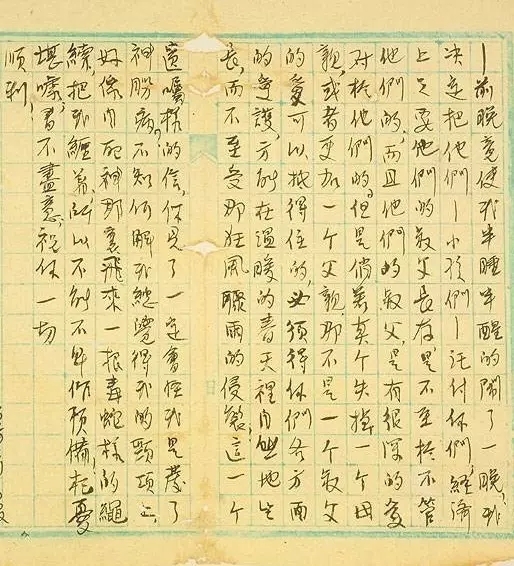 —前晚竟使我半睡半醒的鬧了一晚,我
决定把他們—小孩們—託付你們,經濟
上只要他們的叔父長存,是不至於不管
他們的,而且他們的叔父,是有很深的愛
对於他們的,但是倘若真个失掉一个母
親,或者更加一个父親,那不是一个叔父
的愛可以抵得住的,必須得你們各方面
的愛護,方能在溫暖的春天裡自然地生
長,而不至受那狂風驟雨的侵襲,這一个
遺囑樣的信,你見了一定會怪我是發了
神經病,不知何解,我總覺得我的頸項上,
好像自死神那裏飛來一根毒蛇樣的繩
索,把我纏着,所以不能不早作預備,杞憂
堪嚎,書不盡意,祝你一切
順利